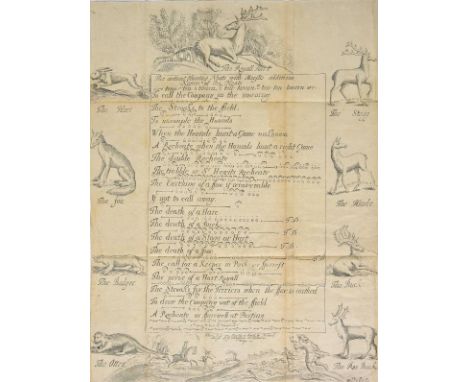 The Royall Hart
The antient Hunting Notes with
To call the Company in the morning
The Strouke to the field.
To uncouple the Hounds
When the Hounds hunt a Game unknown
A Recheate when the Hounds hunt a right Game
The double Recheate
The trebble, or Sr Hewits Recheate
The Earthing of a fox if recoverable
If not to call away
The death of a Hare
The death of a Buck
The death of a Stagg or Hart
The death of a fox
The call for a Keeper in Park or forrest
The prize of a Hart Royall
The Strouke for the Terriers when the fox is earthed
To draw the Company out of the field
A Recheate or farewell at Parting
The Hare
The fox
The Badger
The Otter
The Stagg
The Hinde
The Buck
The Roe Buck